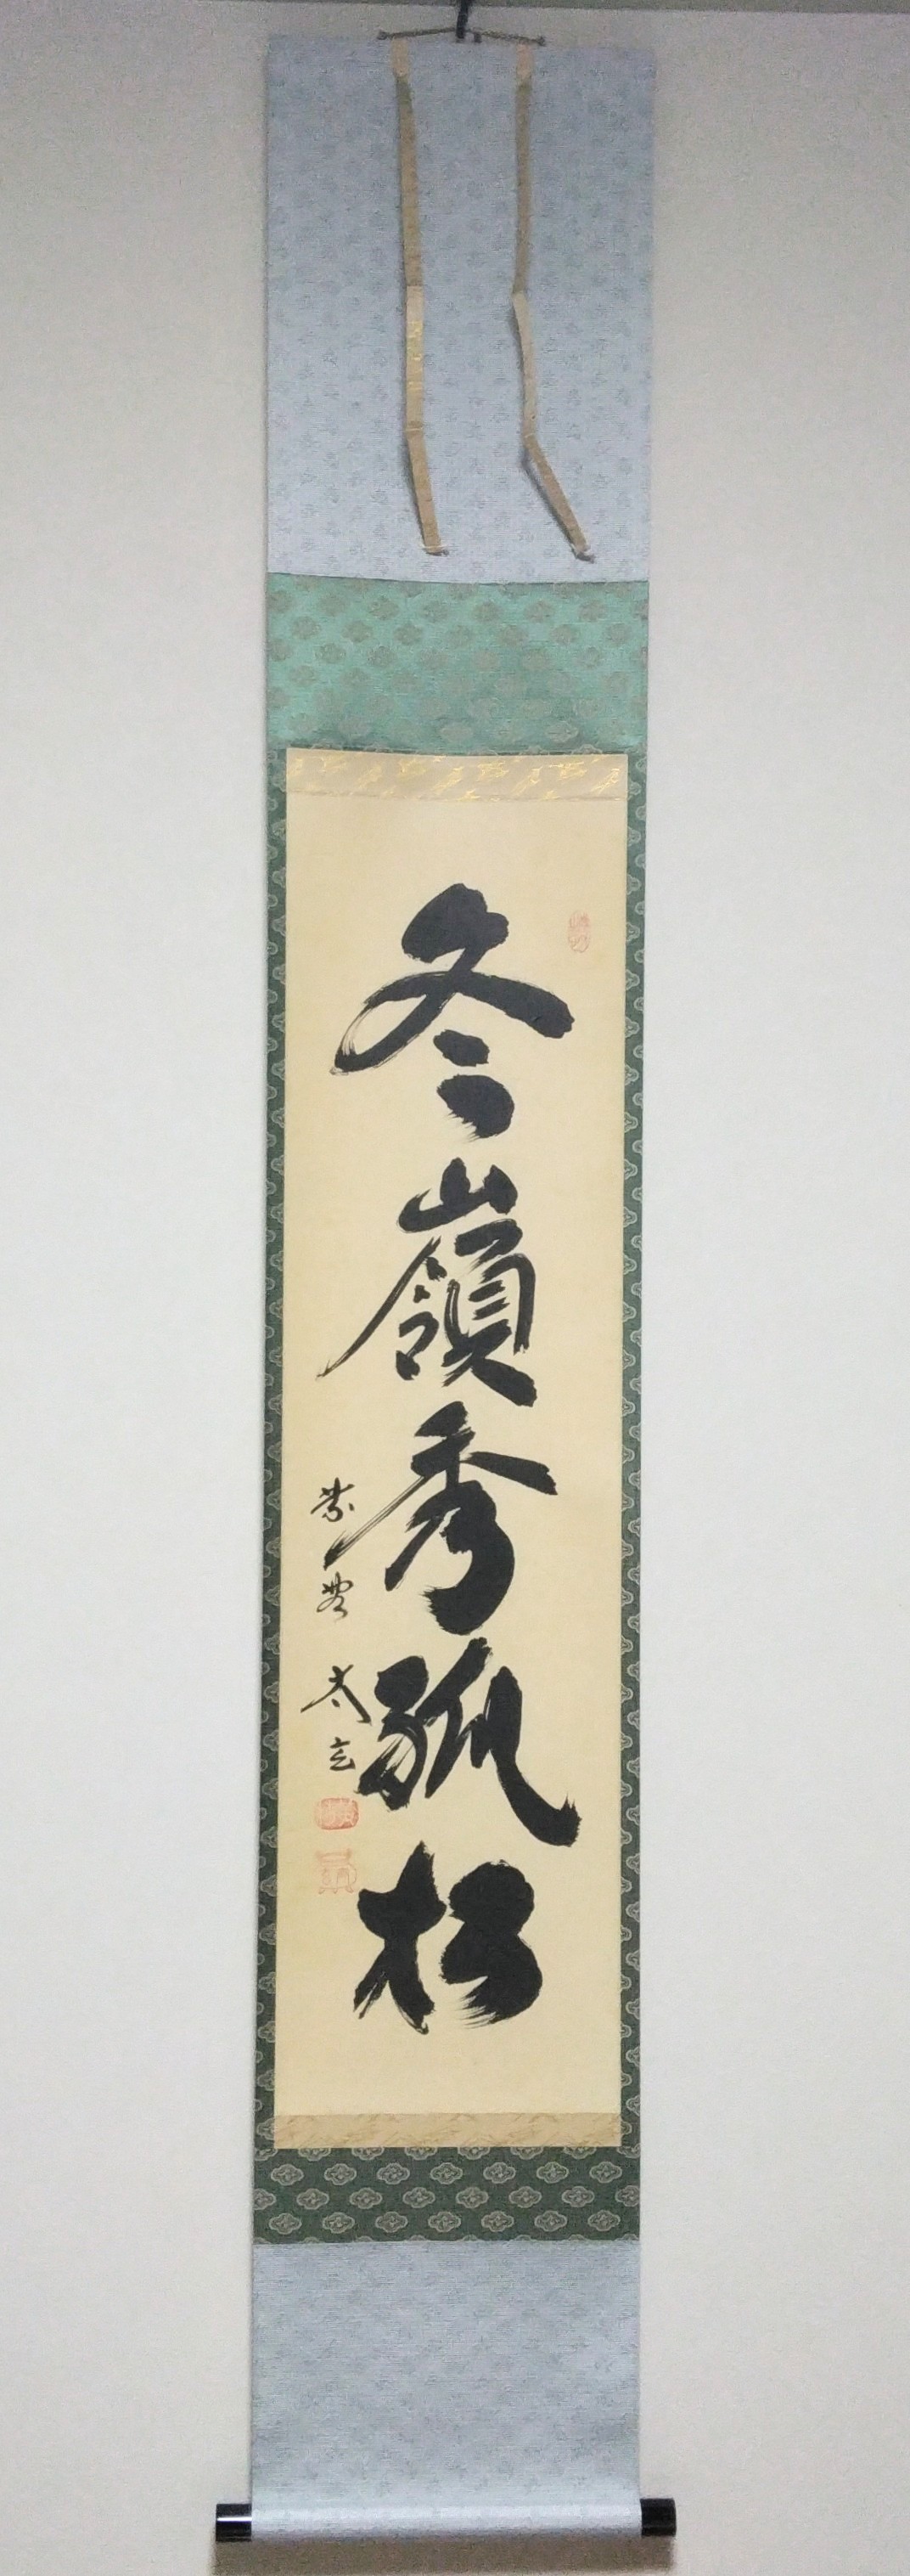 冬嶺秀孤松
紫野 太玄